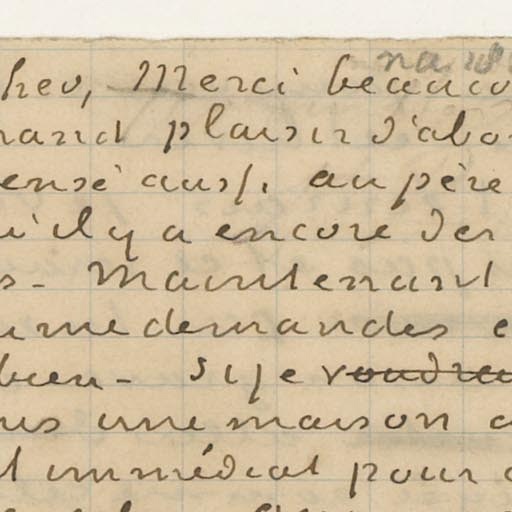 Merci beauco
rand plaisir d'abo
ensé aussi au père
i il y a encore des
s - Maintenant
u me demandes e
bien - si je voudrai
us une maison a
t immédiat pour